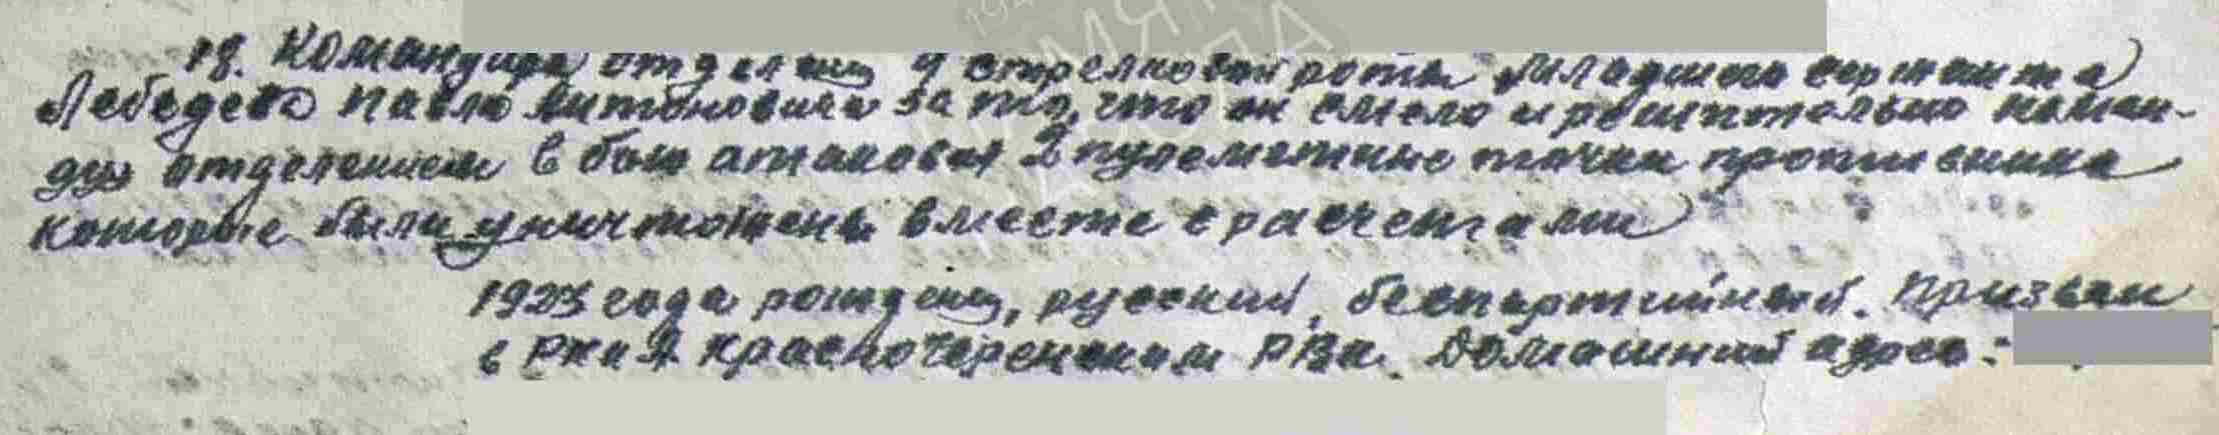 18. Командира отделения 4 стрелковой роты младшего сержанта
Лебедева Павла Антоновича за то, что он смело и решительно коман-
дуя отделением в бою атаковал 2 пулеметные точки противника
которые были уничтожены вместе с расчетами
1923 года рождения, русский, беспартийный. Призван
в РККА Красночеренским РВК. Домашний адрес: